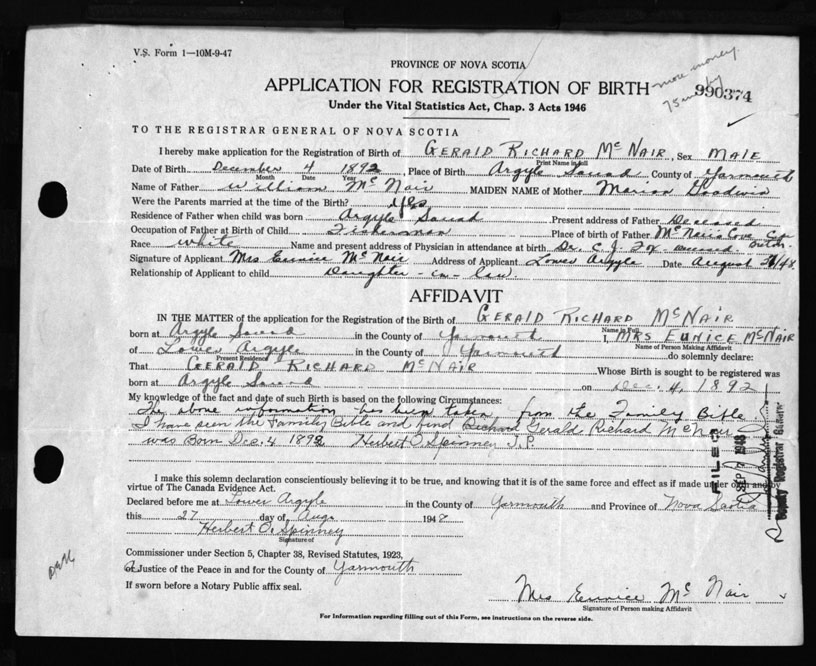 V.S. Form 1—10M-9-47
more money
PROVINCE OF NOVA SCOTIA
APPLICATION FOR REGISTRATION OF BIRTH
990374
Under the Vital Statistics Act, Chap. 3 Acts 1946
TO THE REGISTRAR GENERAL OF NOVA SCOTIA
I hereby make application for the Registration of Birth of GERALD RICHARD McNAIR, Sex MALE
Print Name in full
Date of Birth December 4 1892, Place of Birth Argyle Sound County of Yarmouth
Month Date Year
Name of Father William McNair MAIDEN NAME of Mother Marion Goodwin
Were the Parents married at the time of the Birth? yes
Residence of Father when child was born Argyle Sound Present address of Father Deceased
Occupation of Father at Birth of Child Fisherman Place of birth of Father McNairs Cove Cape Breton
Race white Name and present address of Physician in attendance at birth Dr. C. J. Fox
Signature of Applicant Mrs Eunice McNair Address of Applicant Lower Argyle Date August /48
Relationship of Applicant to child Daughter-in-law
AFFIDAVIT
IN THE MATTER of the application for the Registration of the Birth of GERALD RICHARD McNAIR
Name in Full
born at Argyle Sound in the County of Yarmouth I, MRS EUNICE McNAIR
Name of Person Making Affidavit
of Lower Argyle in the County of Yarmouth do solemnly declare:
Present Residence
That GERALD RICHARD McNAIR Whose Birth is sought to be registered was
born at Argyle Sound on Dec. 4, 1892
My knowledge of the fact and date of such Birth is based on the following Circumstances:
The above information has been taken from the Family Bible
I have seen the Family Bible and find Richard Gerald Richard McNair
was Born Dec. 4 1892 Herbert O Spinney J.P.
FILED
SEP 7 1948
Deputy Registrar General
I make this solemn declaration conscientiously believing it to be true, and knowing that it is of the same force and effect as if made under oath and by
virtue of The Canada Evidence Act.
Declared before me at Lower Argyle in the County of Yarmouth and Province of Nova Scotia
this 27 day of Aug. 1948
Herbert O. Spinney
Signature of
Commissioner under Section 5, Chapter 38, Revised Statutes, 1923,
a Justice of the Peace in and for the County of Yarmouth
If sworn before a Notary Public affix seal.
Mrs Eunice McNair
Signature of Person making Affidavit
For Information regarding filling out of this Form, see instructions on the reverse side.